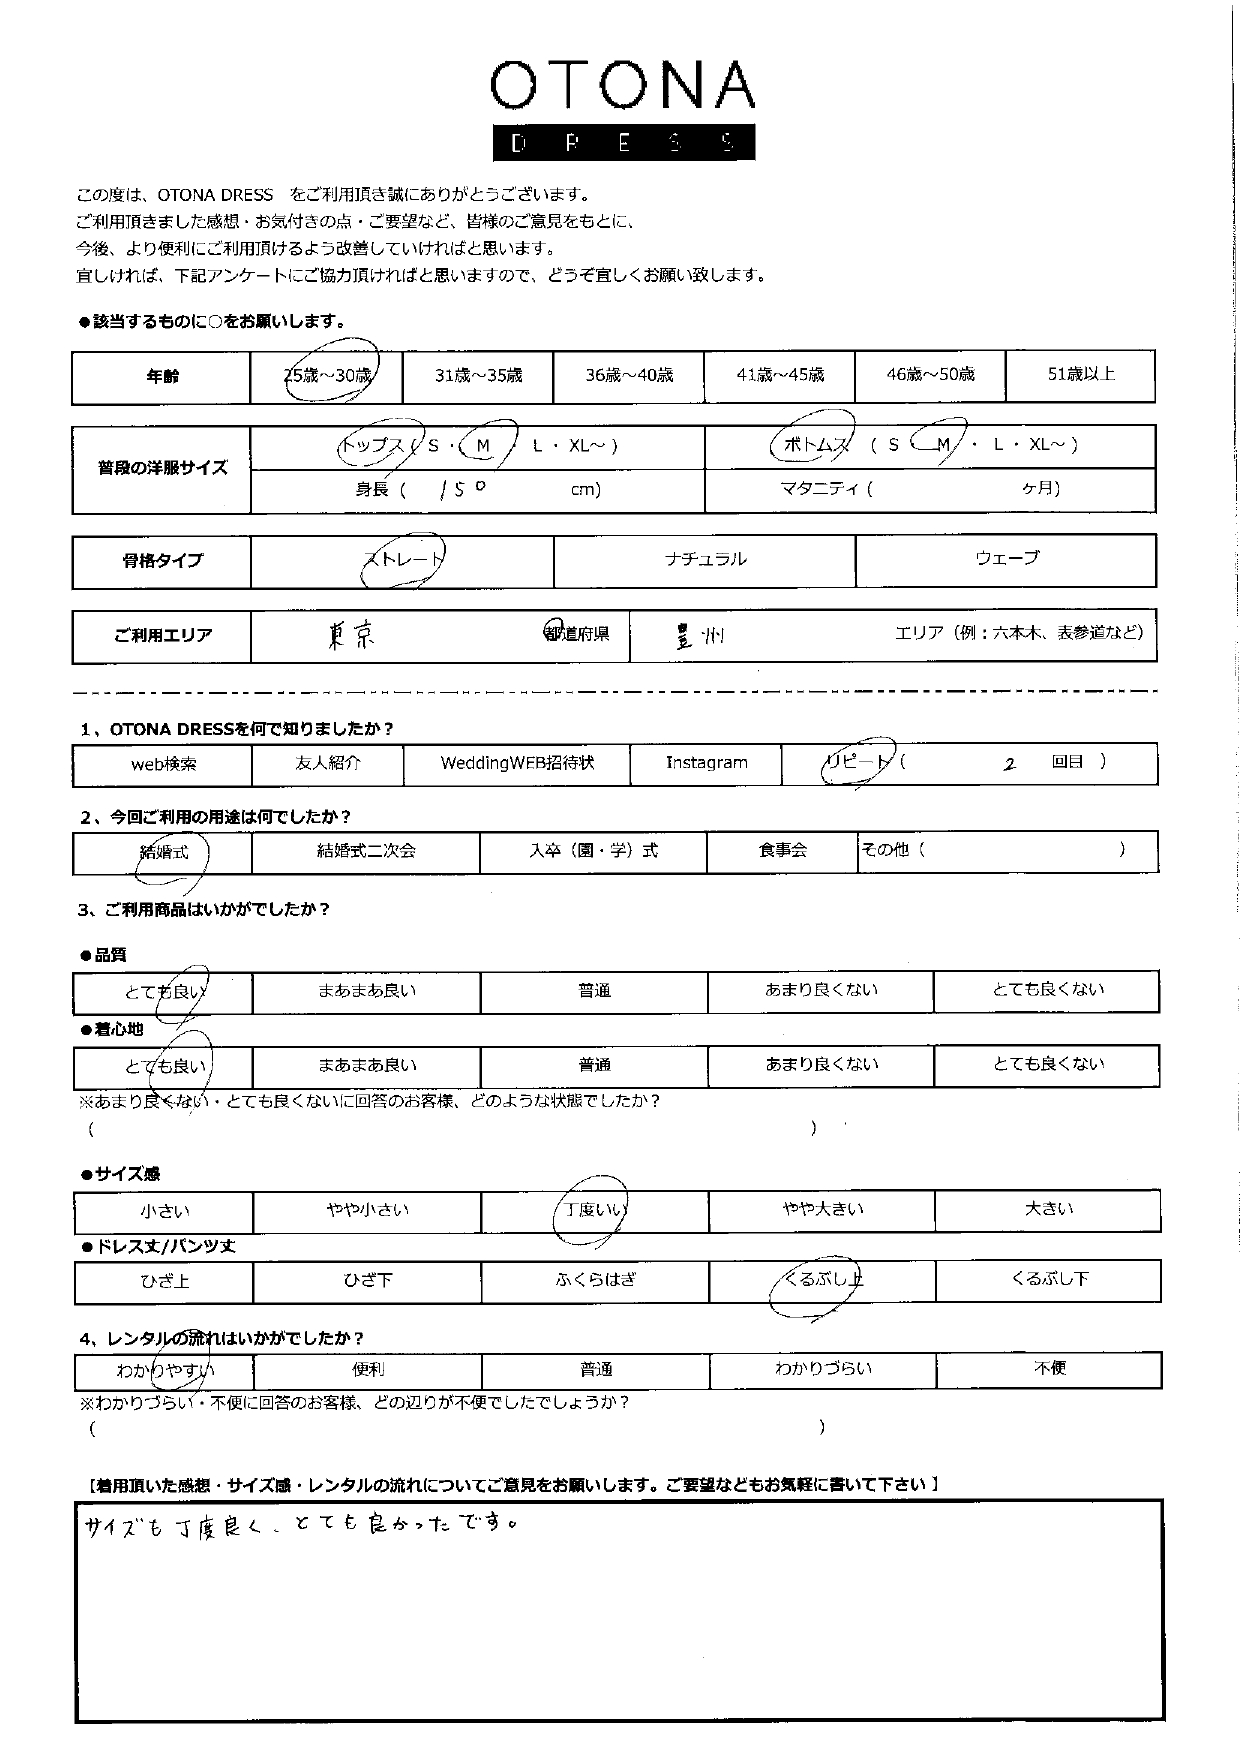 OTONA
DRESS
この度は、OTONA DRESS　をご利用頂き誠にありがとうございます。
ご利用頂きました感想・お気付きの点・ご要望など、皆様のご意見をもとに、
今後、より便利にご利用頂けるよう改善していければと思います。
宜しければ、下記アンケートにご協力頂ければと思いますので、どうぞ宜しくお願い致します。
●該当するものに○をお願いします。
年齢 25歳～30歳 31歳～35歳 36歳～40歳 41歳～45歳 46歳～50歳 51歳以上
普段の洋服サイズ トップス ( S ・ M ・ L ・ XL～ ) ボトムス ( S ・ M ・ L ・ XL～ )
身長 ( 150 cm) マタニティ ( ケ月)
骨格タイプ ストレート ナチュラル ウェーブ
ご利用エリア 東京 都道府県 豊州 エリア（例：六本木、表参道など）
1、OTONA DRESSを何で知りましたか？
web検索 友人紹介 WeddingWEB招待状 Instagram リピート ( 2 回目 )
2、今回ご利用の用途は何でしたか？
結婚式 結婚式二次会 入卒（園・学）式 食事会 その他（ ）
3、ご利用商品はいかがでしたか？
●品質
とても良い まあまあ良い 普通 あまり良くない とても良くない
●着心地
とても良い まあまあ良い 普通 あまり良くない とても良くない
※あまり良くない・とても良くないに回答のお客様、どのような状態でしたか？
( )
●サイズ感
小さい やや小さい 丁度いい やや大きい 大きい
●ドレス丈/パンツ丈
ひざ上 ひざ下 ふくらはぎ くるぶし上 くるぶし下
4、レンタルの流れはいかがでしたか？
わかりやすい 便利 普通 わかりづらい 不便
※わかりづらい・不便に回答のお客様、どの辺りが不便でしたでしょうか？
( )
【着用頂いた感想・サイズ感・レンタルの流れについてご意見をお願いします。ご要望などもお気軽に書いて下さい】
サイズも丁度良く、とても良かったです。